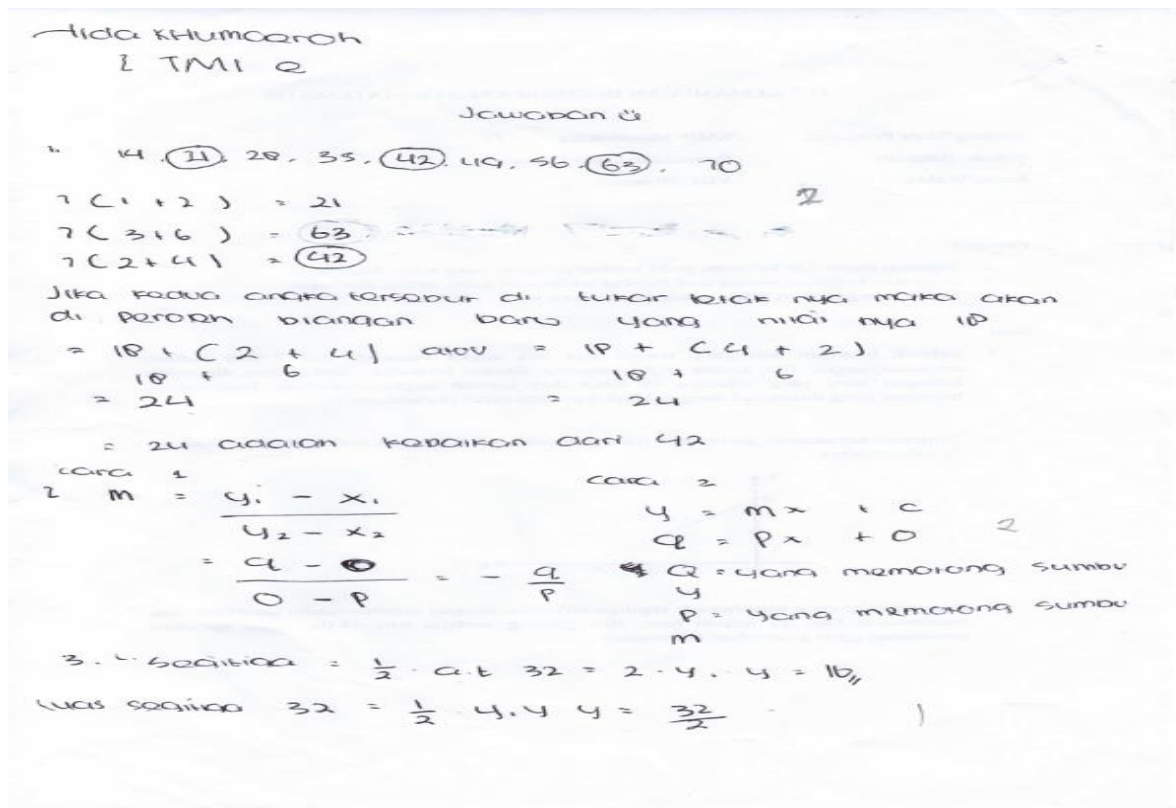 Hida KHUMAEROH
I TMI e
Jawaban ü
1. 14. 21. 28. 35. 42. 49. 56. 63. 70
7 ( 1 + 2 ) = 21
2
7 ( 3 + 6 ) = 63
7 ( 2 + 4 ) = 42
Jika kedua angka tersebut di tukar letak nya maka akan
di peroleh biangan baru yang nilai nya 18
= 18 + ( 2 + 4 ) atau = 18 + ( 4 + 2 )
18 + 6 18 + 6
= 24 = 24
= 24 adalah kebalikan dari 42
cara 1
2 m = y₁ - x₁
y₂ - x₂
= q - 0
0 - p
= - q
p
cara 2
y = mx + c
q = px + 0
2
Q = yang memotong sumbu
y
P = yang memotong sumbu
m
3. L. segitiga = 1/2 . a.t 32 = 2 . y . y = 16,,
luas segitiga 32 = 1/2 . 4 . y y = 32/2
1